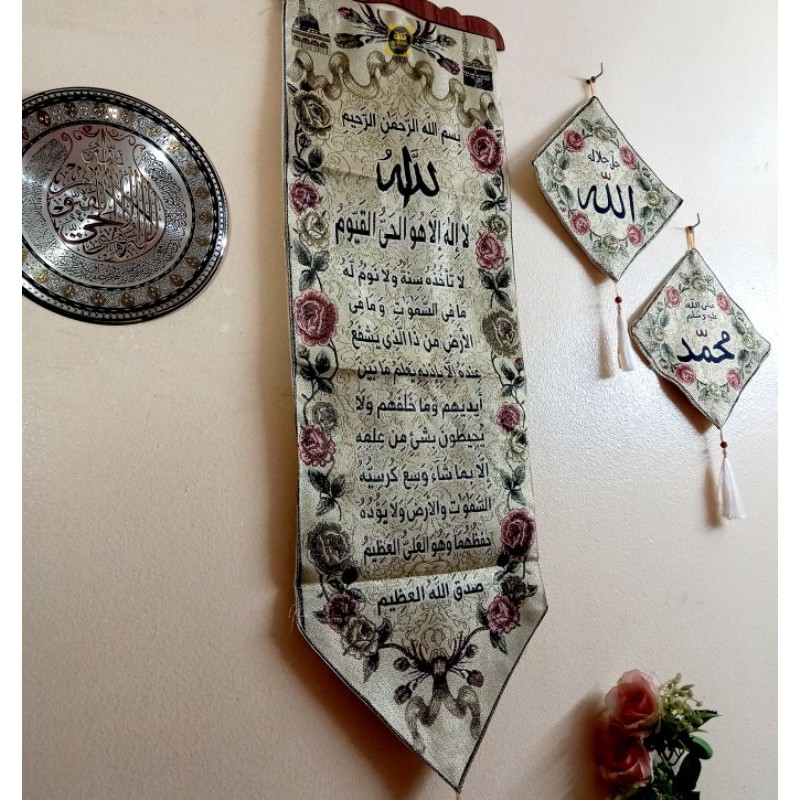 بِسْمِ اللَّهِ الرَّحْمَٰنِ الرَّحِيمِ
اللَّهُ
لَا إِلَٰهَ إِلَّا هُوَ الْحَيُّ الْقَيُّومُ
لَا تَأْخُذُهُ سِنَةٌ وَلَا نَوْمٌ لَهُ
مَا فِي السَّمَٰوَٰتِ وَمَا فِي
الْأَرْضِ مَن ذَا الَّذِي يَشْفَعُ
عِندَهُ إِلَّا بِإِذْنِهِ يَعْلَمُ مَا بَيْنَ
أَيْدِيهِمْ وَمَا خَلْفَهُمْ وَلَا
يُحِيطُونَ بِشَيْءٍ مِنْ عِلْمِهِ
إِلَّا بِمَا شَاءَ وَسِعَ كُرْسِيُّهُ
السَّمَٰوَٰتِ وَالْأَرْضَ وَلَا يَؤُدُهُ
حِفْظُهُمَا وَهُوَ الْعَلِيُّ الْعَظِيمُ
صَدَقَ اللَّهُ الْعَظِيمُ
جل جلاله
اللَّه
صلى الله
عليه وسلم
محمّد